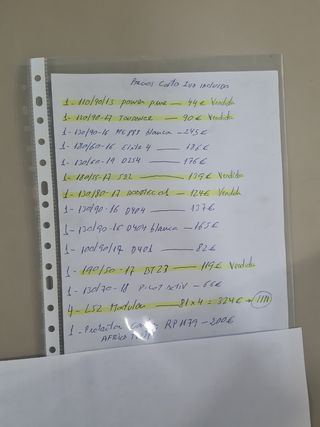 Precios Costo Iva incluido
1 - 110/90/13 power pure — 44€ Vendida
1 - 130/90-17 — 90€ Vendida
1 - 130/90-16 blanca — 245€
1 - 180/60-16 Elite 4 — 186€
1 - 130/60-19 D254 — 176€
1 - 180/55-17 S22 — 139€ Vendida
1 - 130/80-17 — 124€ Vendida
1 - 130/90-16 D404 — 137€
1 - 130/90-16 D404 blanca — 165€
1 - 100/90/19 D401 — 82€
1 - 190/50-17 BT23 — 119€ Vendida
1 - 130/70-18 Pilot Activ — 66€
4 - LS2 Modular — 81 x 4 = 324€
1 - Protector RP1179 — 200€
AFRICA